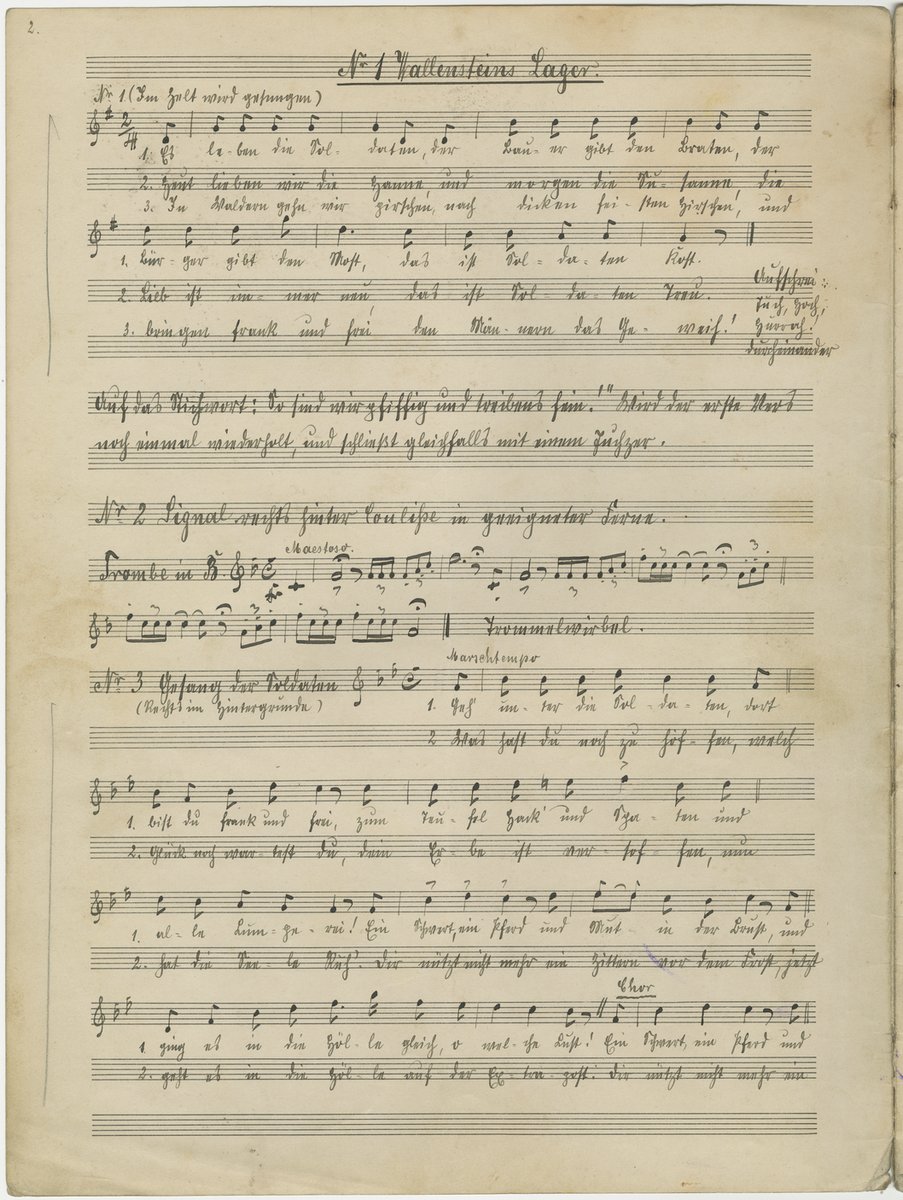 2.
Nr 1 Wallensteins Lager.
Nr 1 (Im Zelt wird gesungen)
1. Es le-ben die Sol-daten, der Bau-er gibt den Braten, der
2. Heut lieben wir die Hanne, und morgen die Su-sanne, die
3. In Wäldern gehn wir pirschen, nach dicken fei-sten Hirschen, und
1. Bür-ger gibt den Most, das ist Sol-da-ten Kost.
2. Lieb ist im-mer neu, das ist Sol-da-ten Treu.
3. bringen frank und frei, den Män-nern das Ge-weih!
Aufschrei:
Juch, Hoch,
Hurrah!
durcheinander
Auf das Stichwort: So sind wir pfiffig und treibens fein!" Wird der erste Vers
noch einmal wiederholt, und schließt gleichfalls mit einem Juchzer.
Nr 2 Signal rechts hinter Coulisse in geeigneter Ferne.
Trombe in B
Maestoso.
Trommelwirbel.
Marschtempo
Nr 3 Gesang der Soldaten
(Rechts im Hintergrunde)
1. Geh' un-ter die Sol-da-ten, dort
2 Was hast du noch zu hof-fen, welch
1. bist du frank und frei, zum Teu-fel Hack' und Spa-ten und
2. Glück noch war-test du, dein Er-be ist ver-sof-fen, nun
1. al-le Lum-pe-rei! Ein Schwert, ein Pferd und Mut- in der Brust, und
2. hat die See-le Ruh'. Dir nützt nicht mehr ein Zittern vor dem Frost, jetzt
Chor
1. ging es in die Höl-le gleich, o wel-che Lust! Ein Schwert, ein Pferd und
2. geht es in die Höl-le auf der Ex-tra-post! dir nützt nicht mehr ein